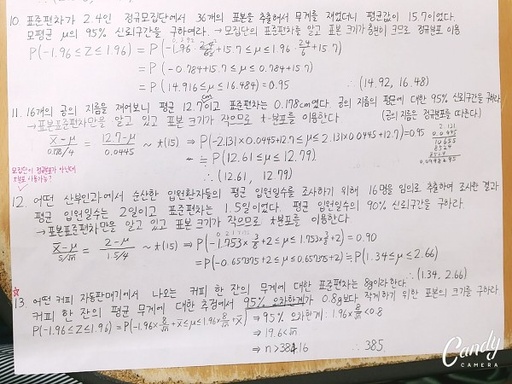 10. 표준편차가 2.4인 정규모집단에서 36개의 표본을 추출해서 무게를 재었더니 평균값이 15.7이었다.
모평균 μ의 95% 신뢰구간을 구하여라. → 모집단의 표준편차를 알고 표본 크기가 충분히 크므로 정규분포 이용
P(-1.96≤Z≤1.96) = P(-1.96·2.4/6+15.7≤μ≤1.96·2.4/6+15.7)
= P(-0.784+15.7≤μ≤0.784+15.7)
= P(14.916≤μ≤16.484)=0.95 ∴ (14.92, 16.48)
11. 16개의 공의 지름을 재어보니 평균 12.7cm이고 표준편차는 0.178cm였다. 공의 지름의 평균에 대한 95% 신뢰구간을 구하라
→ 표본표준편차만을 알고 있고 표본 크기가 작으므로 t-분포를 이용한다 (공의 지름은 정규분포를 따른다)
x̄-μ / 0.178/4 = 12.7-μ / 0.0445 ~ t(15) ⇒ P(-2.131×0.0445+12.7≤μ≤2.131×0.0445+12.7)=0.95
≒ P(12.61≤μ≤12.79)
∴ (12.61, 12.79)
12. 어떤 산부인과에서 순산한 입원환자들의 평균 입원일수를 조사하기 위하여 16명을 임의로 추출하여 조사한 결과
평균 입원일수는 2일이고 표준편차는 1.5일이었다. 평균 입원일수의 90% 신뢰구간을 구하라.
→ 표본표준편차만을 알고 있고 표본 크기가 작으므로 t분포를 이용한다
x̄-μ / s/√n = 2-μ / 1.5/4 ~ t(15) ⇒ P(-1.753×3/8+2≤μ≤1.753×3/8+2) = 0.90
=P(-0.657375+2≤μ≤0.657375+2)≒P(1.34≤μ≤2.66)
∴ (1.34, 2.66)
13. 어떤 커피 자동판매기에서 나오는 커피 한 잔의 무게에 대한 표준편차는 8g이라한다.
커피 한 잔의 평균 무게에 대한 추정에서 95% 오차한계가 0.8g보다 작게하기 위한 표본의 크기를 구하라
P(-1.96≤Z≤1.96)=P(-1.96×8/√n+x̄≤μ≤1.96×8/√n+x̄) ⇒ 95% 오차한계 1.96×8/√n<0.8
⇒ 19.6<√n
⇒ n>384.16 ∴ 385
Candy
CAMERA